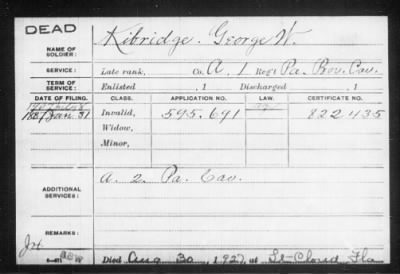 DEAD
NAME OF SOLDIER: Kibridge. George W.
SERVICE: Late rank, Co. A, 1 Reg't Pa. Prov. Cav.
TERM OF SERVICE: Enlisted , 1 Discharged , 1
DATE OF FILING. CLASS. APPLICATION NO. LAW. CERTIFICATE NO.
1887 Jan. 31 Invalid, 595.691 822435
Widow,
Minor,
ADDITIONAL SERVICES: A. 2. Pa. Cav.
REMARKS:
Died Aug 30, 1927, at St-Cloud Fla